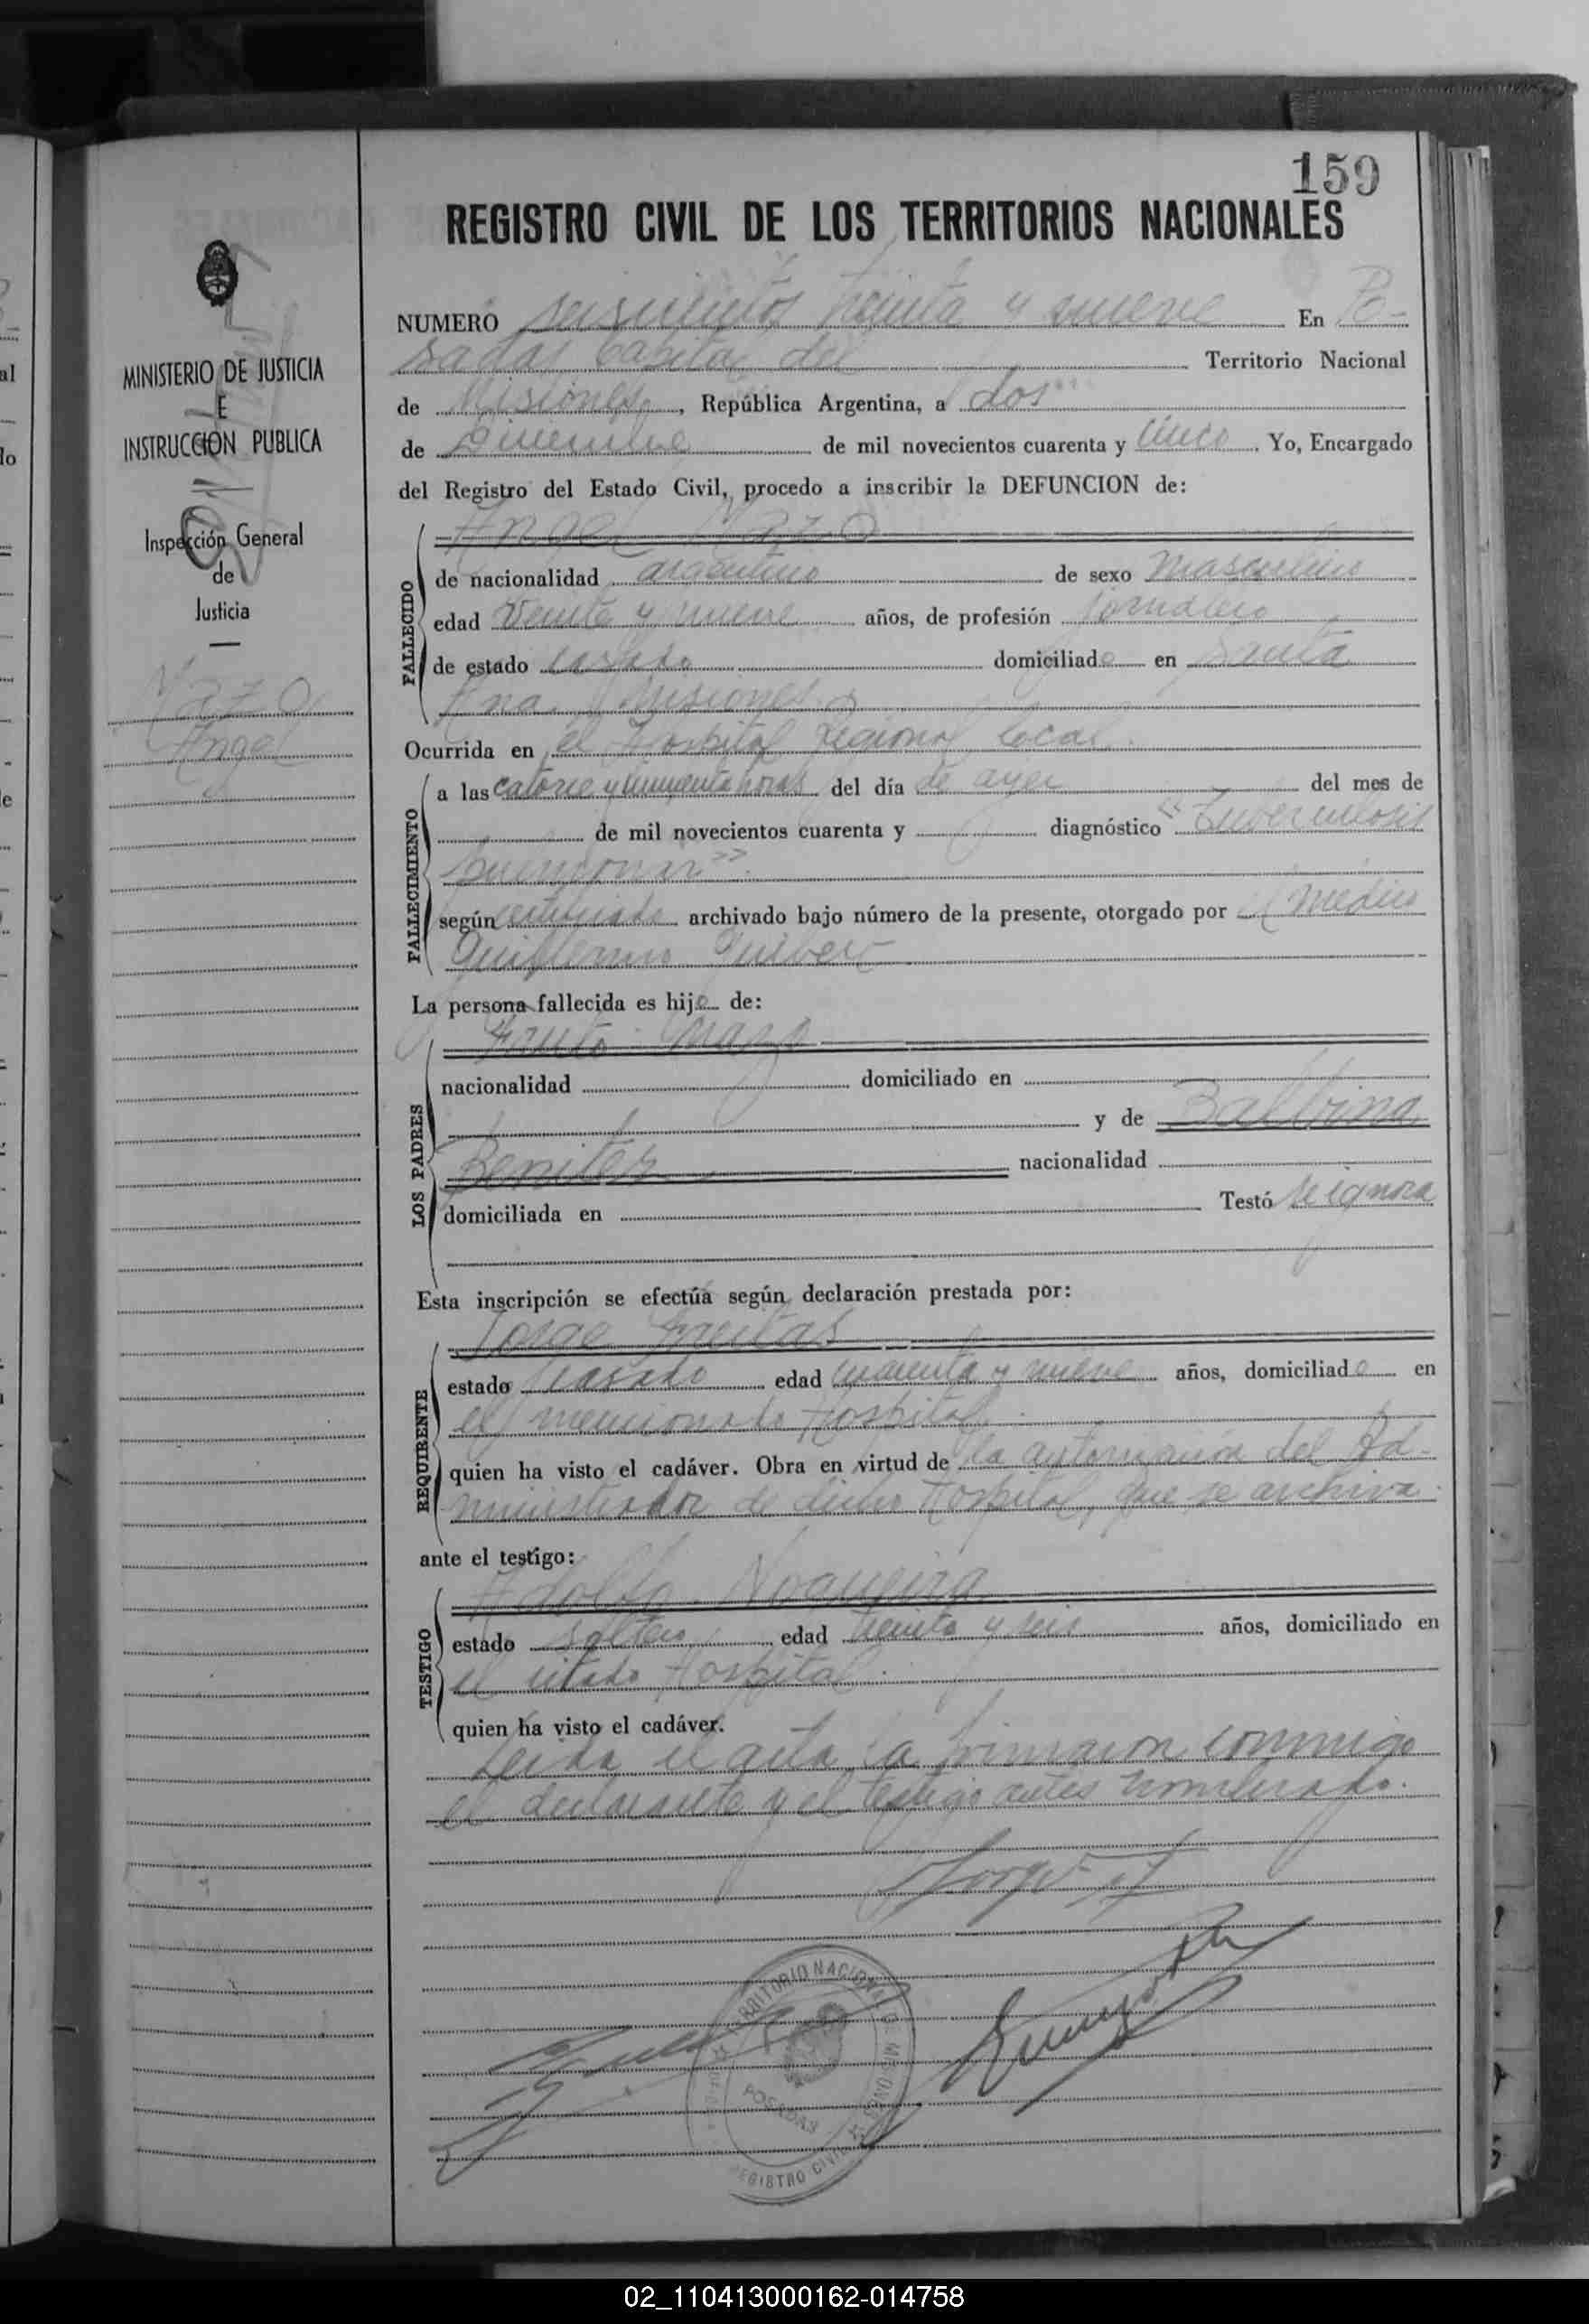 159
REGISTRO CIVIL DE LOS TERRITORIOS NACIONALES
MINISTERIO DE JUSTICIA
E
INSTRUCCION PUBLICA
Inspección General
de
Justicia
Mazo
Angel
NUMERO seiscientos treinta y nueve En Po-
sadas Capital del Territorio Nacional
de Misiones, República Argentina, a dos
de Diciembre de mil novecientos cuarenta y cinco. Yo, Encargado
del Registro del Estado Civil, procedo a inscribir la DEFUNCION de:
Angel Mazo
FALLECIDO
de nacionalidad argentino de sexo masculino
edad veinte y nueve años, de profesión jornalero
de estado casado domiciliado en Santa
Ana, Misiones
Ocurrida en el Hospital Regional local.
FALLECIMIENTO
a las catorce y cincuenta horas del día de ayer del mes de
de mil novecientos cuarenta y diagnóstico "Tuberculosis
pulmonar".
según certificado archivado bajo número de la presente, otorgado por el médico
Guillermo
La persona fallecida es hijo de:
Fruto Mazo
LOS PADRES
nacionalidad domiciliado en
y de Balbina
Benitez nacionalidad
domiciliada en Testó se ignora
Esta inscripción se efectúa según declaración prestada por:
Jorge Freitas
REQUIRENTE
estado casado edad cuarenta y nueve años, domiciliado en
el mencionado Hospital.
quien ha visto el cadáver. Obra en virtud de la autorización del Ad-
ministrador de dicho Hospital, que se archiva.
ante el testigo:
Adolfo Nogueira
TESTIGO
estado soltero edad treinta y seis años, domiciliado en
el citado Hospital.
quien ha visto el cadáver.
Leida el acta la firmaron conmigo
el declarante y el testigo antes nombrado.
Jorge
TERRITORIO NACIONAL DE MISIONES
POSADAS
REGISTRO CIVIL
02_110413000162-014758